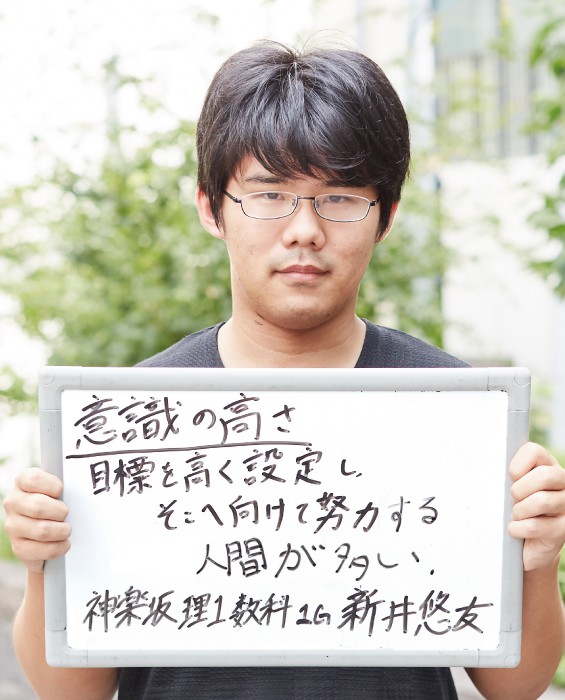 意識の高さ
目標を高く設定し、
そこへ向けて努力する
人間が多い.
神楽坂 理1数科 1G 新井悠友